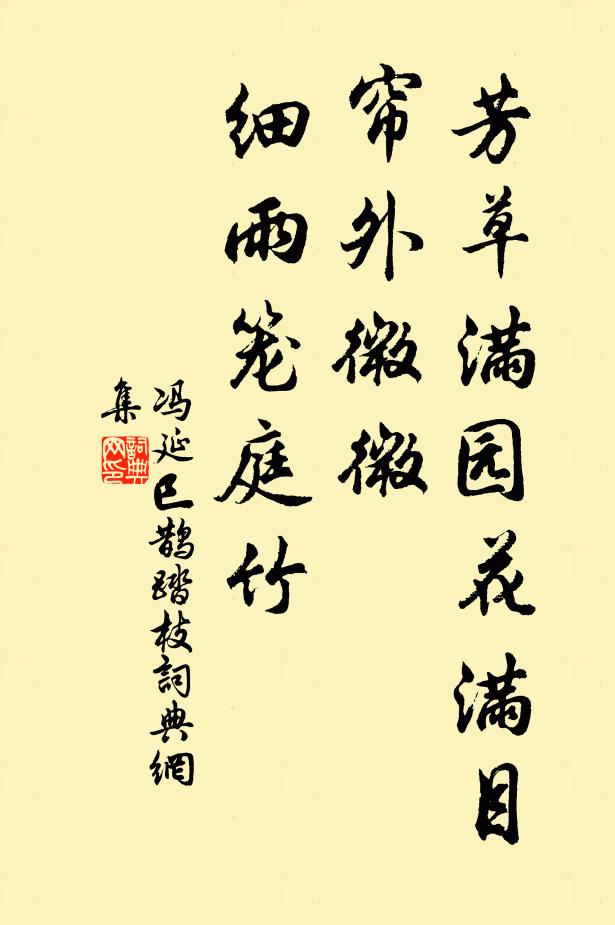 芳草满园花满目
帘外微微
细雨笼庭竹
冯延巳鹊踏枝詞典網
集
詞典网印